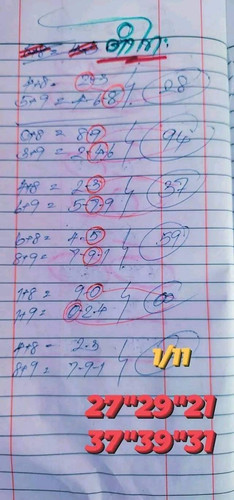 4+8 = 2-3
5+9 = 4-6-8 28
0+8 = 89
3+9 = 2-4-6 94
4+8 = 2-3
6+9 = 5-7-9 37
6+8 = 4-5
8+9 = 7-9-1 59
1+8 = 90
1+9 = 0-2-4 00
4+8 - 2-3
8+9 = 7-9-1
1/11
27"29"21
37"39"31